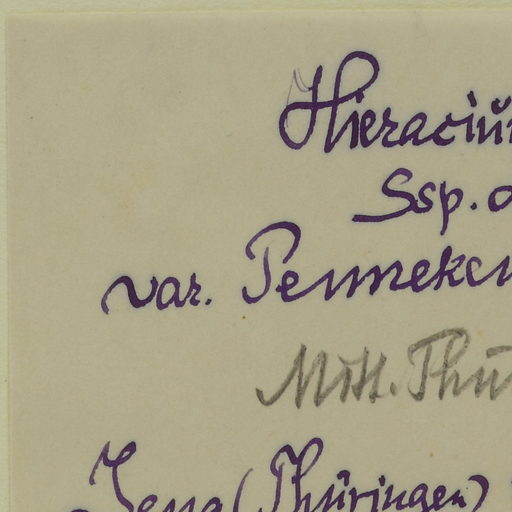 Hieraciu
Ssp.
var. Penneken
Mitt. Thü
Jena (Thüringen)